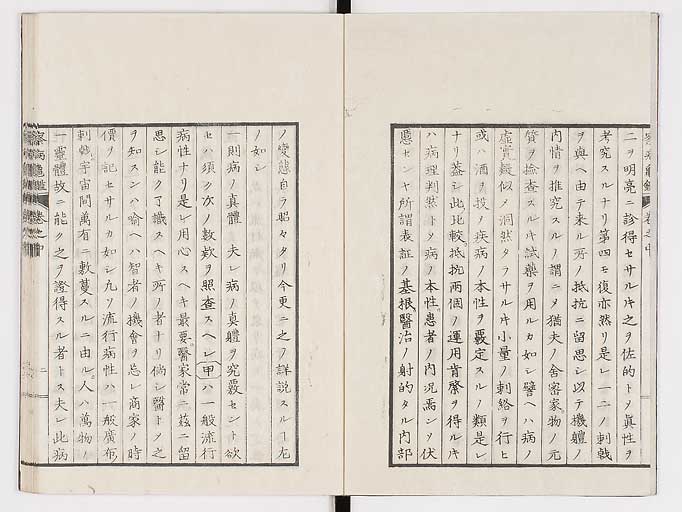 察病龜鑑 巻之中
二ヲ明亮ニ診得セサル𪜈之ヲ佐的トメ眞性ヲ
考究スルナリ第四モ復亦然リ是レ一二ノ刺戟
ヲ與ヘ由テ来ル所ノ抵抗ニ留思シ以テ機軆ノ
内情ヲ推究スルノ謂ニメ猶夫ノ舎密家物ノ元
質ヲ撿査スル𪜈試藥ヲ用ルカ如シ譬ヘハ病ノ
虚實疑似メ洞然タラサル𪜈小量ノ刺絡ヲ行ヒ
或ハ酒ヲ投メ疾病ノ本性ヲ覈定スルノ類是レ
ナリ蓋シ此比較抵抗兩個ノ運用肯綮ヲ得ル𪜈
ハ病理判然トメ病ノ本性患者ノ内況焉ンソ伏
慝センヤ所謂表証ノ基根醫治ノ射的タル内部
ノ變態自ラ昭々タリ今更ニ之ノ詳説スルー左
ノ如シ
一則病ノ眞體 夫レ病ノ眞軆ヲ究覈セント欲
セハ須ク次ノ數欵ヲ照査スヘシ甲ハ一般流行
病性ナリ是レ用心スヘキ最要醫家常ニ茲ニ留
思シ能ク了識スヘキ所ノ者ナリ倘シ醫トメ之
ヲ知スンハ喩ヘハ智者ノ機會ヲ忘レ商家ノ時
價ヲ記セサルカ如シ九ソ流行病性ハ一般廣布
刺戟宇宙間萬有ニ敷蔓スルニ由ル人ハ萬物ノ
一靈體故ニ能ク之ヲ證得スル者トス夫レ此病
察病龜鑑 巻之中 二